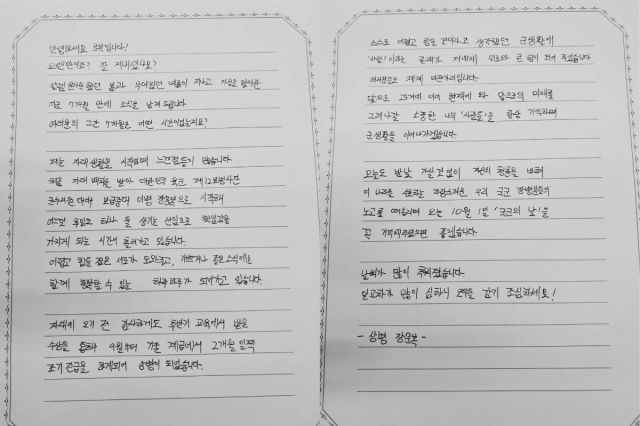 안녕하세요 윤복입니다!
오랜만이죠? 잘 지내셨나요?
설렘 가득했던 봄과 무더웠던 여름이 지나고 가을을 맞이한
지금 7개월 만에 소식을 남겨 드립니다.
여러분의 그간 7개월은 어떤 시간이었는지요?
저는 자대생활을 시작하며 느낀점들이 많습니다.
처음 자대 배치를 받아 대한민국 육군 제12보병사단
군수지원대대 보급중대 이병 장윤복으로 시작해
어느덧 후임도 하나 둘 생기는 선임으로 책임감을
가지게 되는 시간이 흘러가고 있습니다.
어렵고 힘든 점은 서로가 도와주고, 기쁘거나 좋은 소식에는
함께 행복할 수 있는 하루하루가 되어가고 있습니다.
자대에 오기 전 감사하게도 후반기 교육에서 받은
수상을 통해 9월부터 기존 계급에서 2개월 일찍
조기진급을 하게되어 상병이 되었습니다.
스스로 어렵고 힘든 것이라고 생각했던 군생활에
'사람'이라는 존재가 저에게 위로와 큰 힘이 되어 주었습니다.
여러분들도 제게 마찬가지입니다.
앞으로 과거에 이어 현재에 와 앞으로의 미래를
그려나갈 소중한 나의 '사람들'을 항상 기억하며
군생활을 이어나가겠습니다.
오늘도 밤낮 가릴 것 없이 자신의 청춘을 바쳐
이 나라를 수호하는 자랑스러운 우리 국군 장병분들의
노고를 떠올리며 오는 10월 1일 '국군의 날'을
꼭 기억해주셨으면 좋겠습니다.
날씨가 많이 추워졌습니다.
일교차가 많이 심하니 모두들 감기 조심하세요!
- 상병 장윤복 -